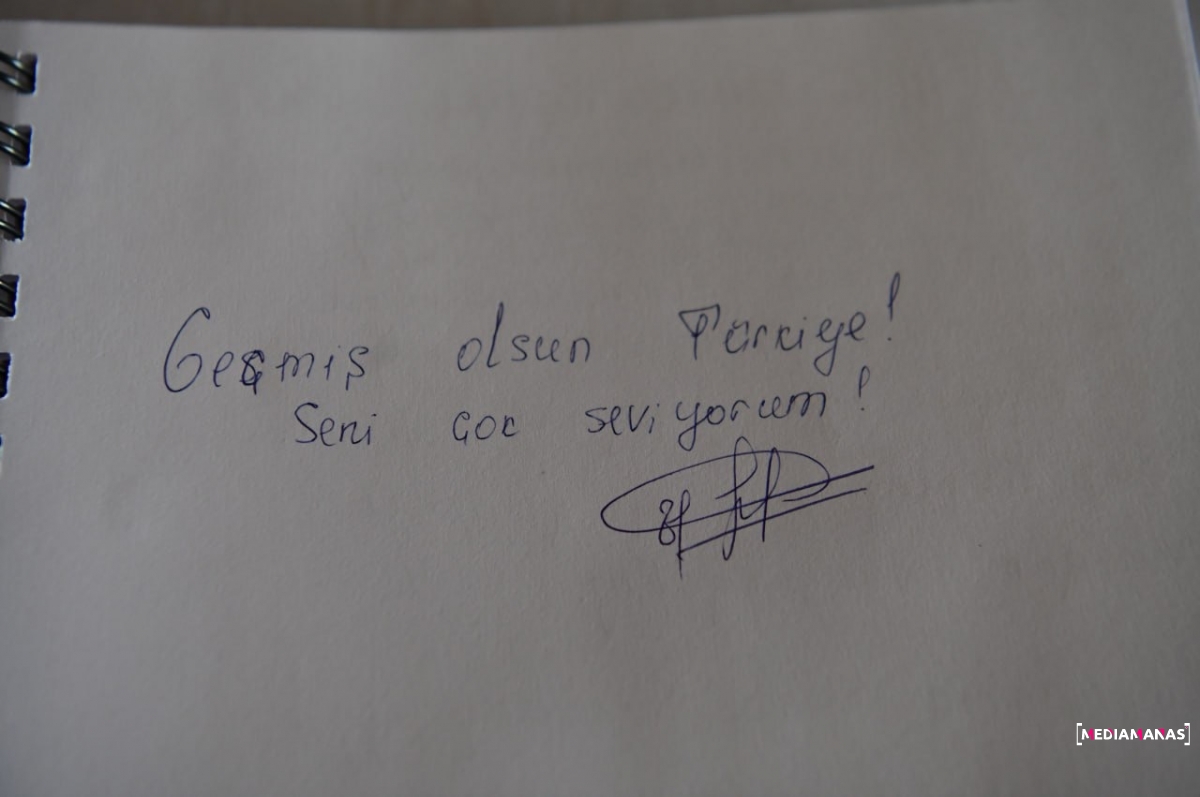 Geçmiş olsun Türkiye!
Seni çok seviyorum!
[MEDIAMANAS]